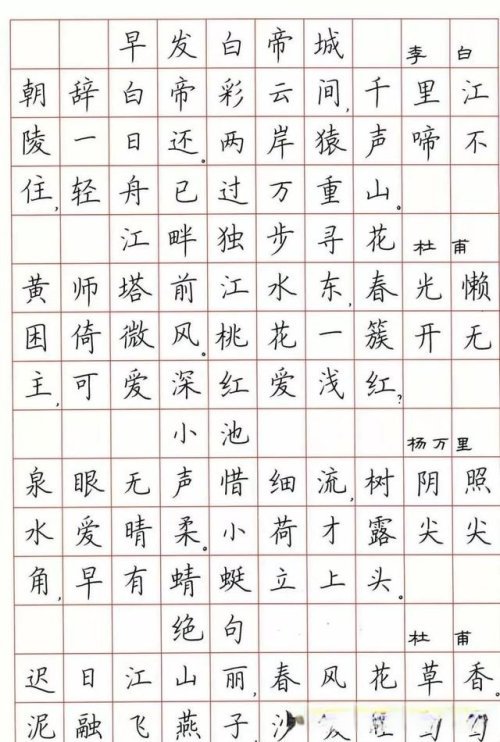 早发白帝城 李白
朝辞白帝彩云间,千里江
陵一日还。两岸猿声啼不
住,轻舟已过万重山。
江畔独步寻花 杜甫
黄师塔前江水东,春光懒
困倚微风。桃花一簇开无
主,可爱深红爱浅红?
小池 杨万里
泉眼无声惜细流,树阴照
水爱晴柔。小荷才露尖尖
角,早有蜻蜓立上头。
绝句 杜甫
迟日江山丽,春风花草香。
泥融飞燕子,沙